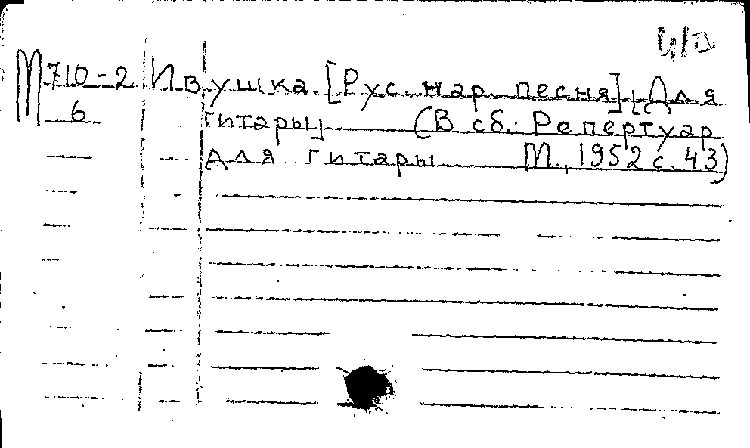 М 710-2 Ивушка. [Рус. нар. песня] [Для
6 гитары] (В сб.: Репертуар
для гитары М., 1952 с. 43)